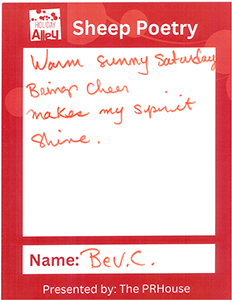 HOLIDAY
Alley
Sheep Poetry
Warm sunny Saturday
Brings Cheer
makes my spirit
Shine.
Name: Bev. C.
Presented by: The PRHouse